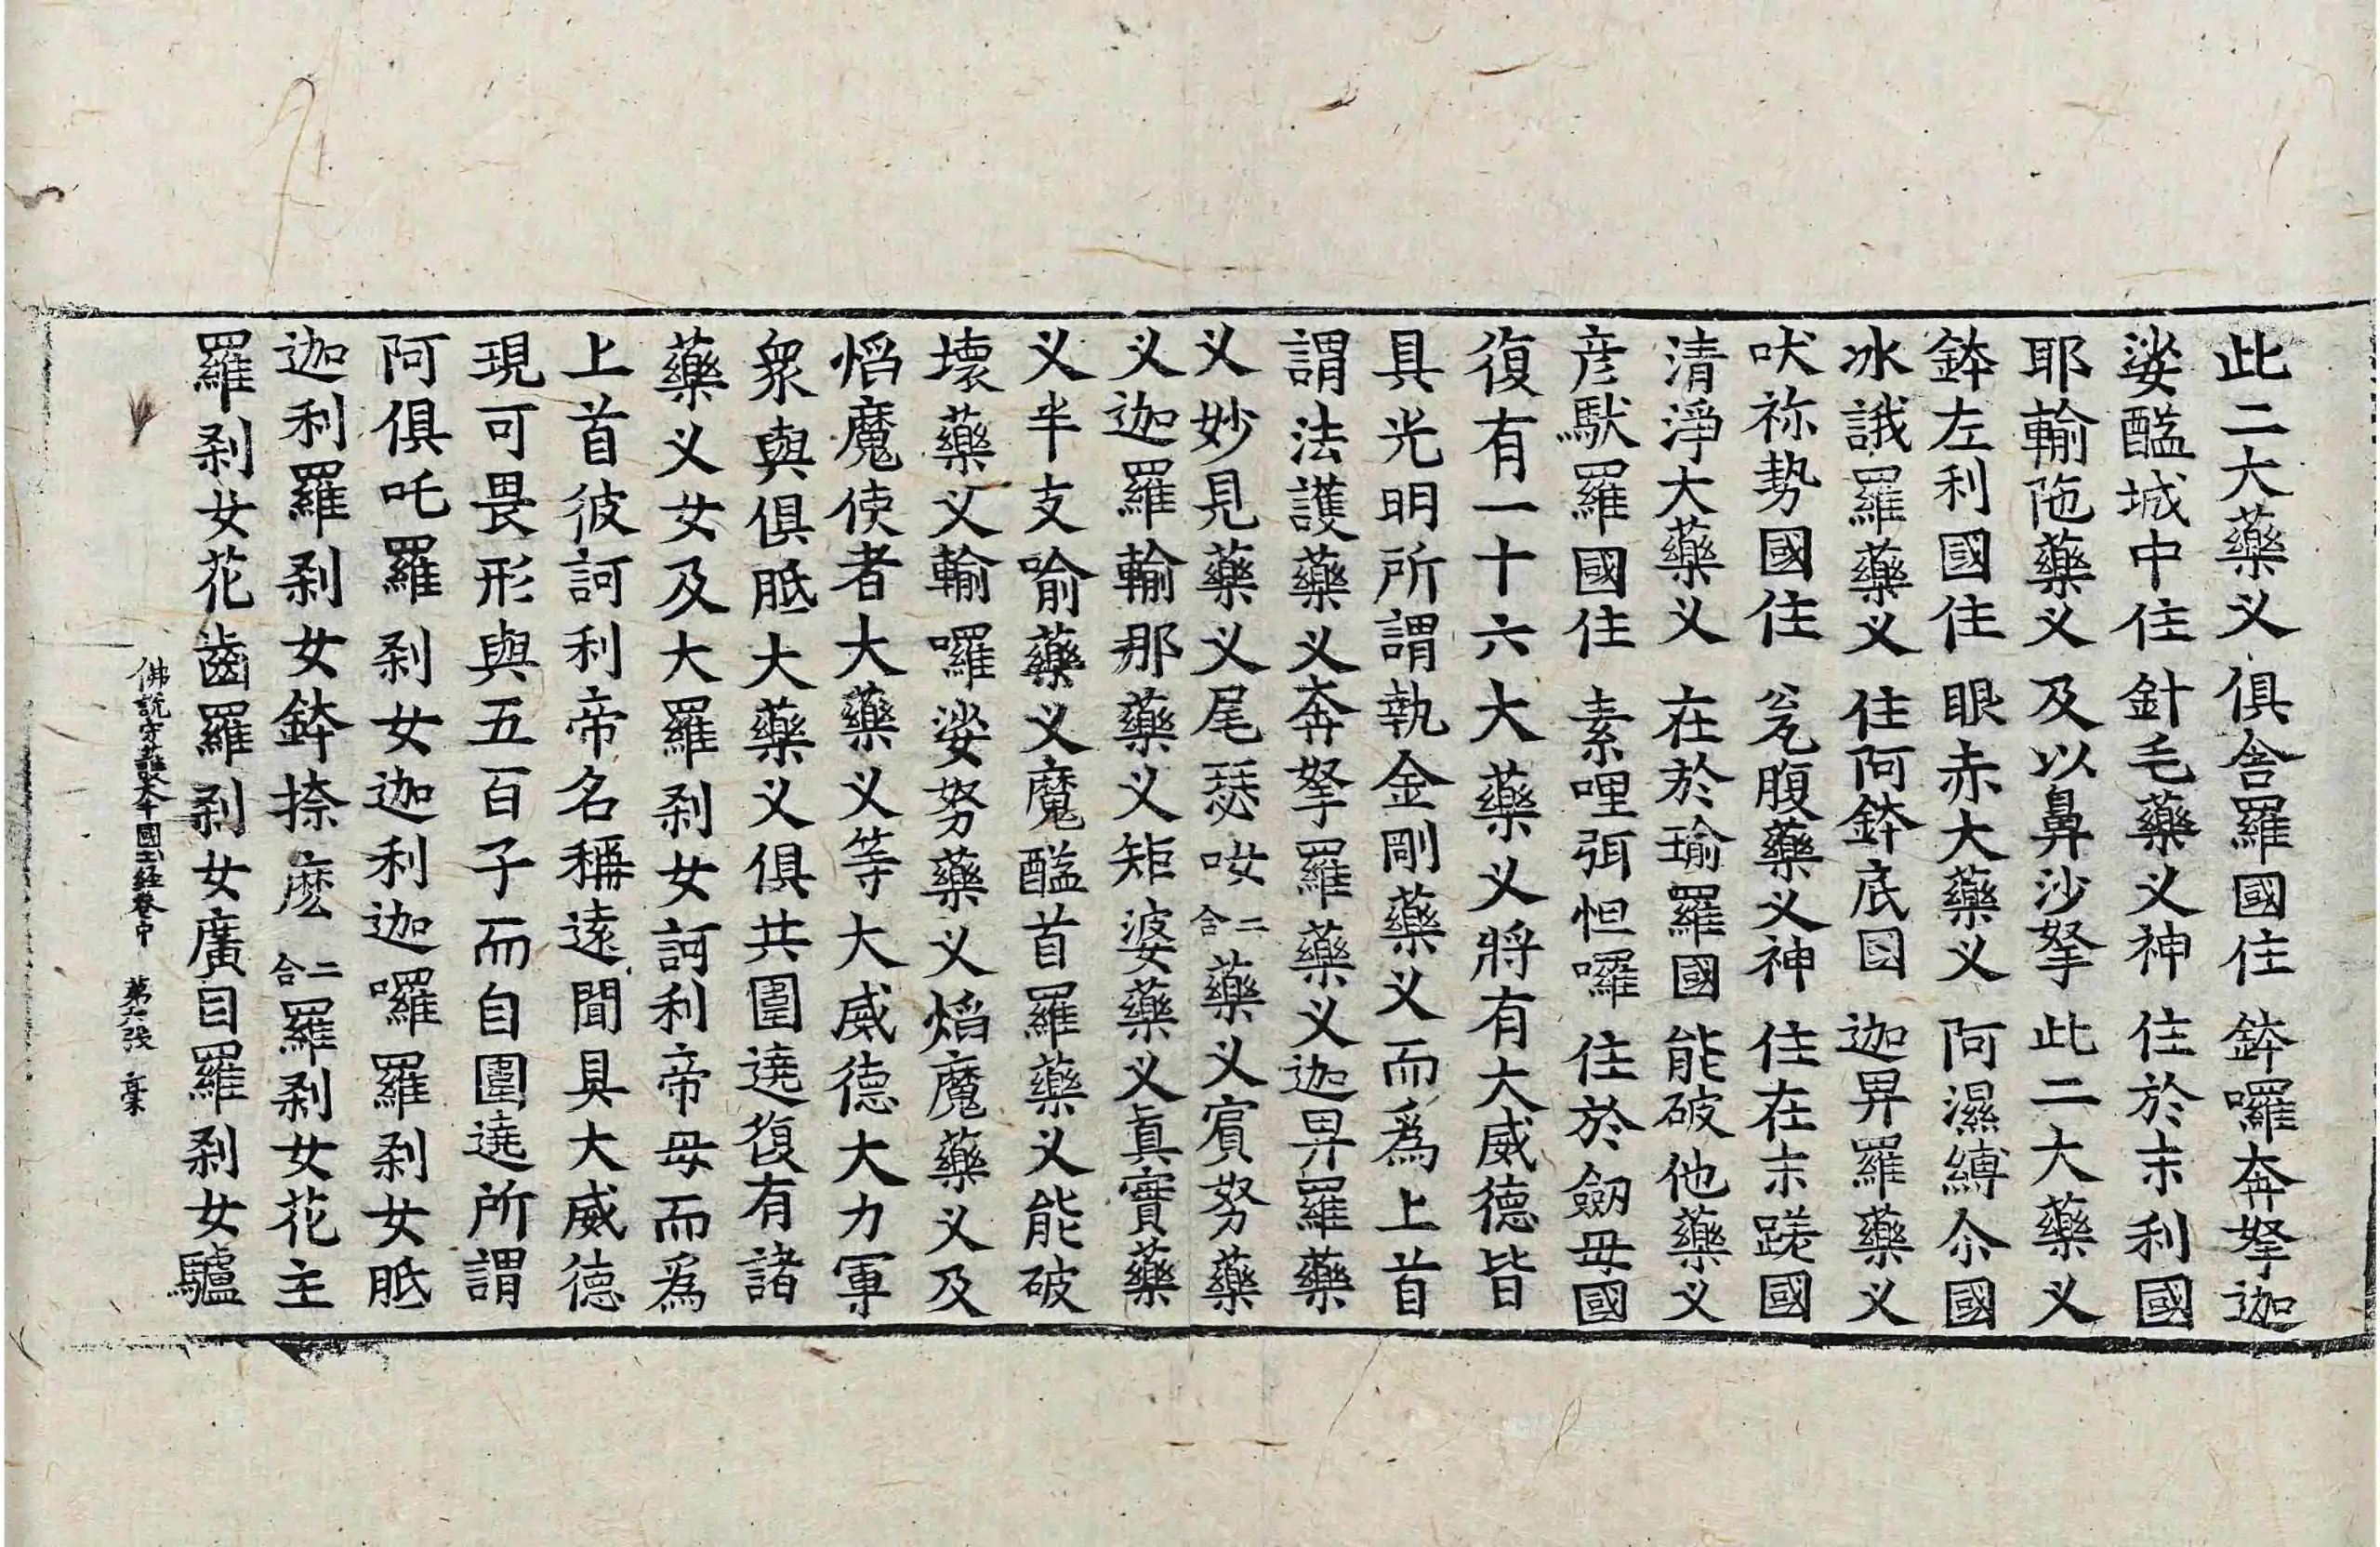 此二大藥义 俱舍羅國住 鉢囉奔拏迦
娑醯城中住 針毛藥义神 住於末利國
耶輸陁藥义 及以鼻沙拏 此二大藥义
鉢左利國住 眼赤大藥义 阿濕縛尒國
冰誐羅藥义 住阿鉢底国 迦畀羅藥义
吠祢势國住 瓮腹藥义神 住在末蹉國
清淨大藥义 在於瑜羅國 能破他藥义
彦馱羅國住 素哩弭怛囉 住於劒毋國
復有一十六大藥义將有大威德皆
具光明所謂執金剛藥义而爲上首
謂法護藥义奔拏羅藥义迦畀羅藥
义妙見藥义尾瑟呶二合藥义賔努藥
义迦羅輸那藥义矩婆藥义真實藥
义半支喻藥义魔醯首羅藥义能破
壞藥义輸囉娑努藥义焰魔藥义及
焰魔使者大藥义等大威德大力軍
衆與俱胝大藥义俱共圍遶復有諸
藥义女及大羅剎女訶利帝母而爲
上首彼訶利帝名稱逺聞具大威德
現可畏形與五百子而自圍遶所謂
阿俱吒羅剎女迦利迦囉羅剎女胝
迦利羅剎女鉢捺麽二合羅剎女花主
羅剎女花齒羅剎女廣目羅剎女驢
佛說守護大千國土經卷中 第六張 槀